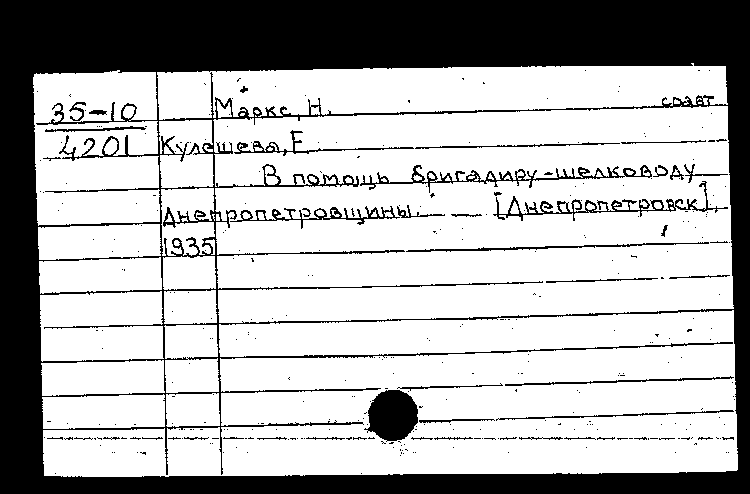 35-10 Маркс, Н. соавт
4201 Кулешева, Е
В помощь бригадиру-шелководу
Днепропетровщины. — [Днепропетровск],
1935